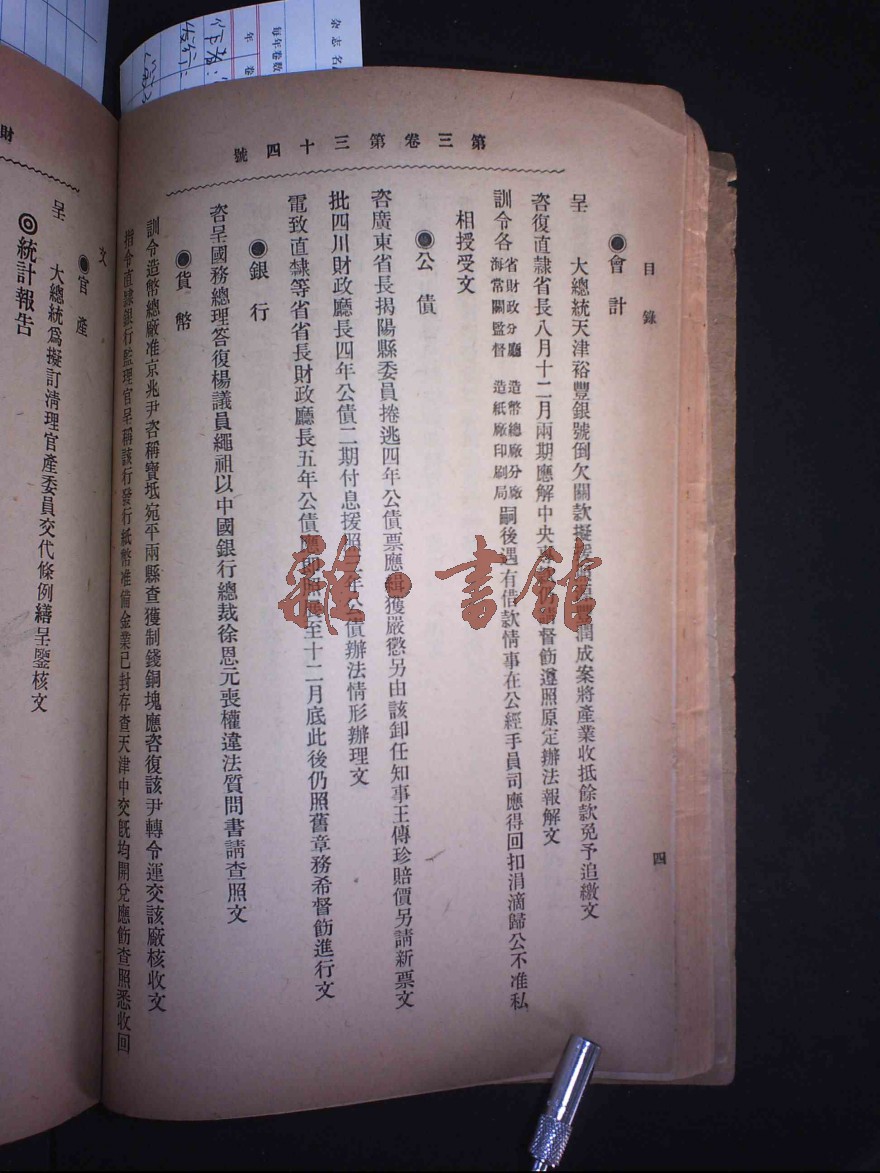 杂志名
每年卷数
年 卷
作者:
发行:
第三卷第三十四號
目錄
四
◉會計
呈 大總統天津裕豐銀號倒欠關款擬潤成案將產業收抵餘款免予追繳文
咨復直隸省長八月十二月兩期應解中央督飭遵照原定辦法報解文
訓令各省財政分廳海常關監督 造幣總廠分廠造紙廠印刷局嗣後遇有借款情事在公經手員司應得回扣涓滴歸公不准私
相授受文
◉公債
咨廣東省長揭陽縣委員捲逃四年公債票應緝獲嚴懲另由該卸任知事王傳珍賠價另請新票文
批四川財政廳長四年公債二期付息援照年公債辦法情形辦理文
電致直隸等省省長財政廳長五年公債應即照至十二月底此後仍照舊章務希督飭進行文
◉銀行
咨呈國務總理答復楊議員繩祖以中國銀行總裁徐恩元喪權違法質問書請查照文
◉貨幣
訓令造幣總廠准京兆尹咨稱寶坻宛平兩縣查獲制錢銅塊應咨復該尹轉令運交該廠核收文
指令直隸銀行監理官呈稱該行發行紙幣准備金業已封存查天津中交既均開兌應飭查照悉收回
文
◉官產
呈 大總統爲擬訂清理官產委員交代條例繕呈鑒核文
◎統計報告
財
雜·書館